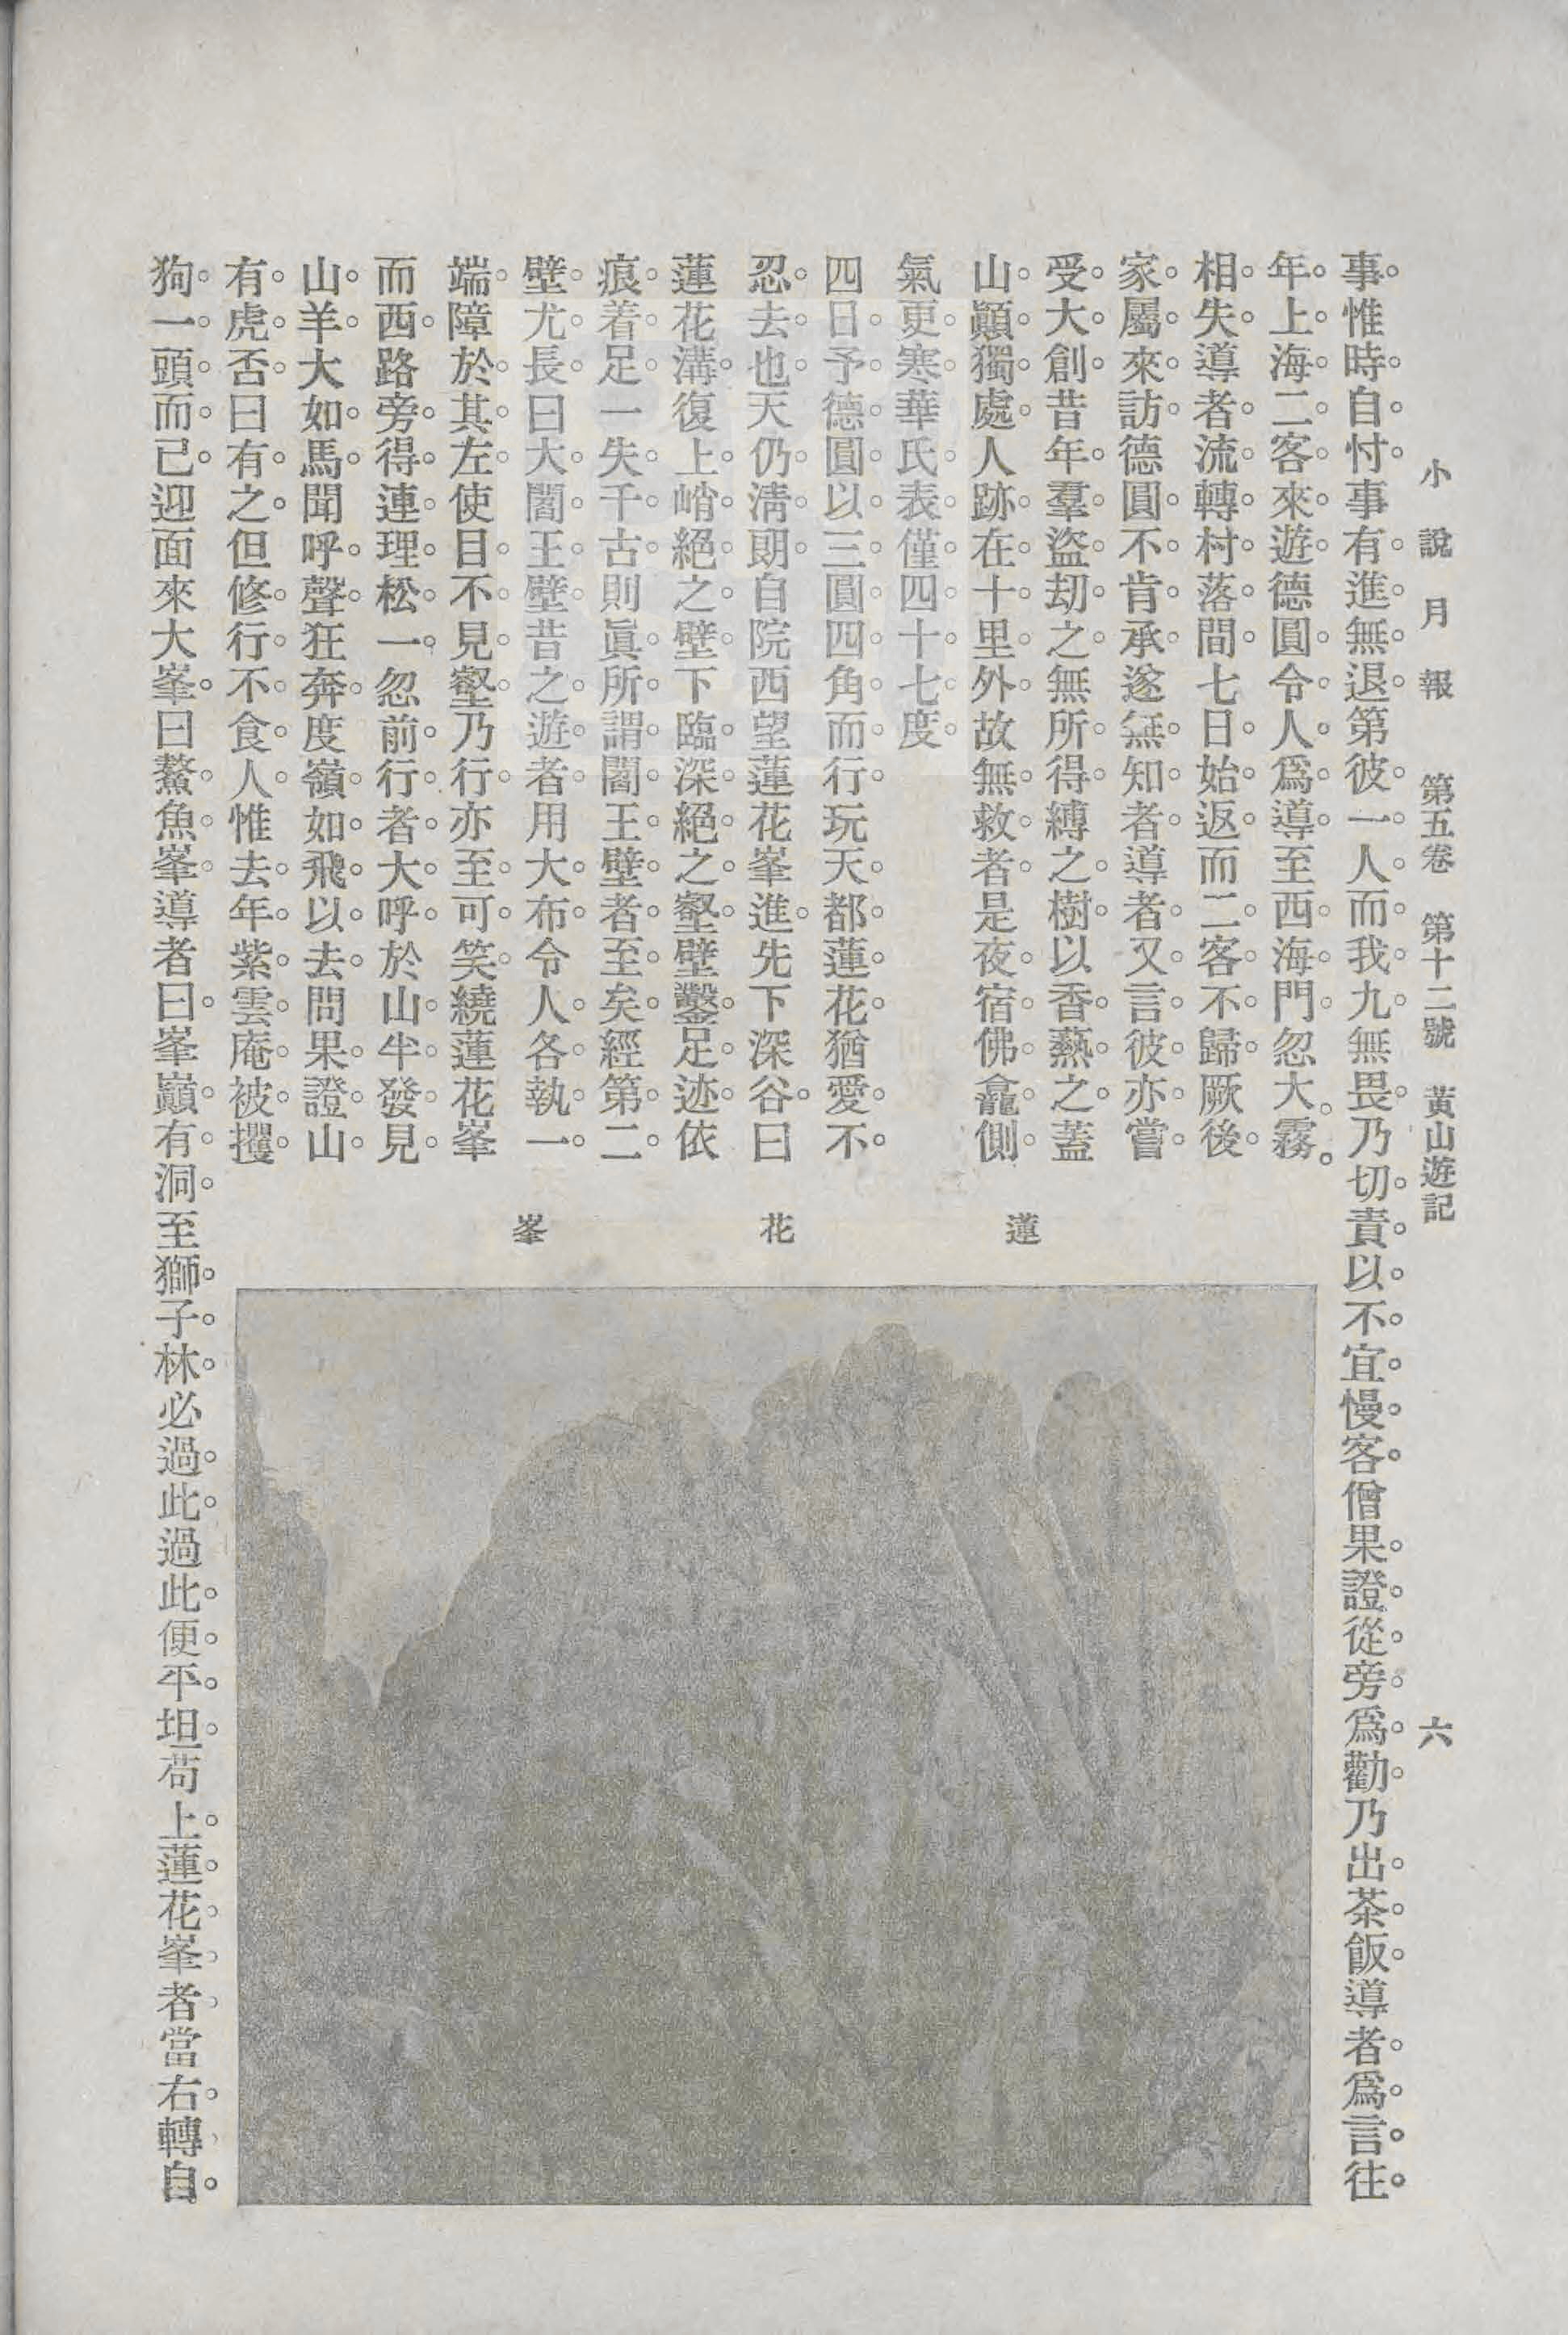 小說月報 第五卷 第十二號 黃山遊記 六
事惟時自忖事有進無退第彼一人而我九無畏乃切責以不宜慢客僧果證從旁爲勸乃出茶飯導者爲言往
年上海二客來遊德圓令人爲導至西海門忽大霧
相失導者流轉村落間七日始返而二客不歸厥後
家屬來訪德圓不肯承遂無知者導者又言彼亦嘗
受大創昔年羣盜刼之無所得縛之樹以香爇之蓋
山顚獨處人跡在十里外故無救者是夜宿佛龕側
氣更寒華氏表僅四十七度
四日予德圓以三圓四角而行玩天都蓮花猶愛不
忍去也天仍淸朗自院西望蓮花峯進先下深谷曰
蓮花溝復上峭絕之壁下臨深絕之壑壁鑿足迹依
痕着足一失千古則眞所謂閻王壁者至矣經第二
壁尤長曰大閻王壁昔之遊者用大布令人各執一
端障於其左使目不見壑乃行亦至可笑繞蓮花峯
而西路旁得連理松一忽前行者大呼於山半發見
山羊大如馬聞呼聲狂奔度嶺如飛以去問果證山
有虎否曰有之但修行不食人惟去年紫雲庵被攫
狗一頭而已迎面來大峯曰鰲魚峯導者曰峯巔有洞至獅子林必過此過此便平坦苟上蓮花峯者當右轉自
蓮花峯